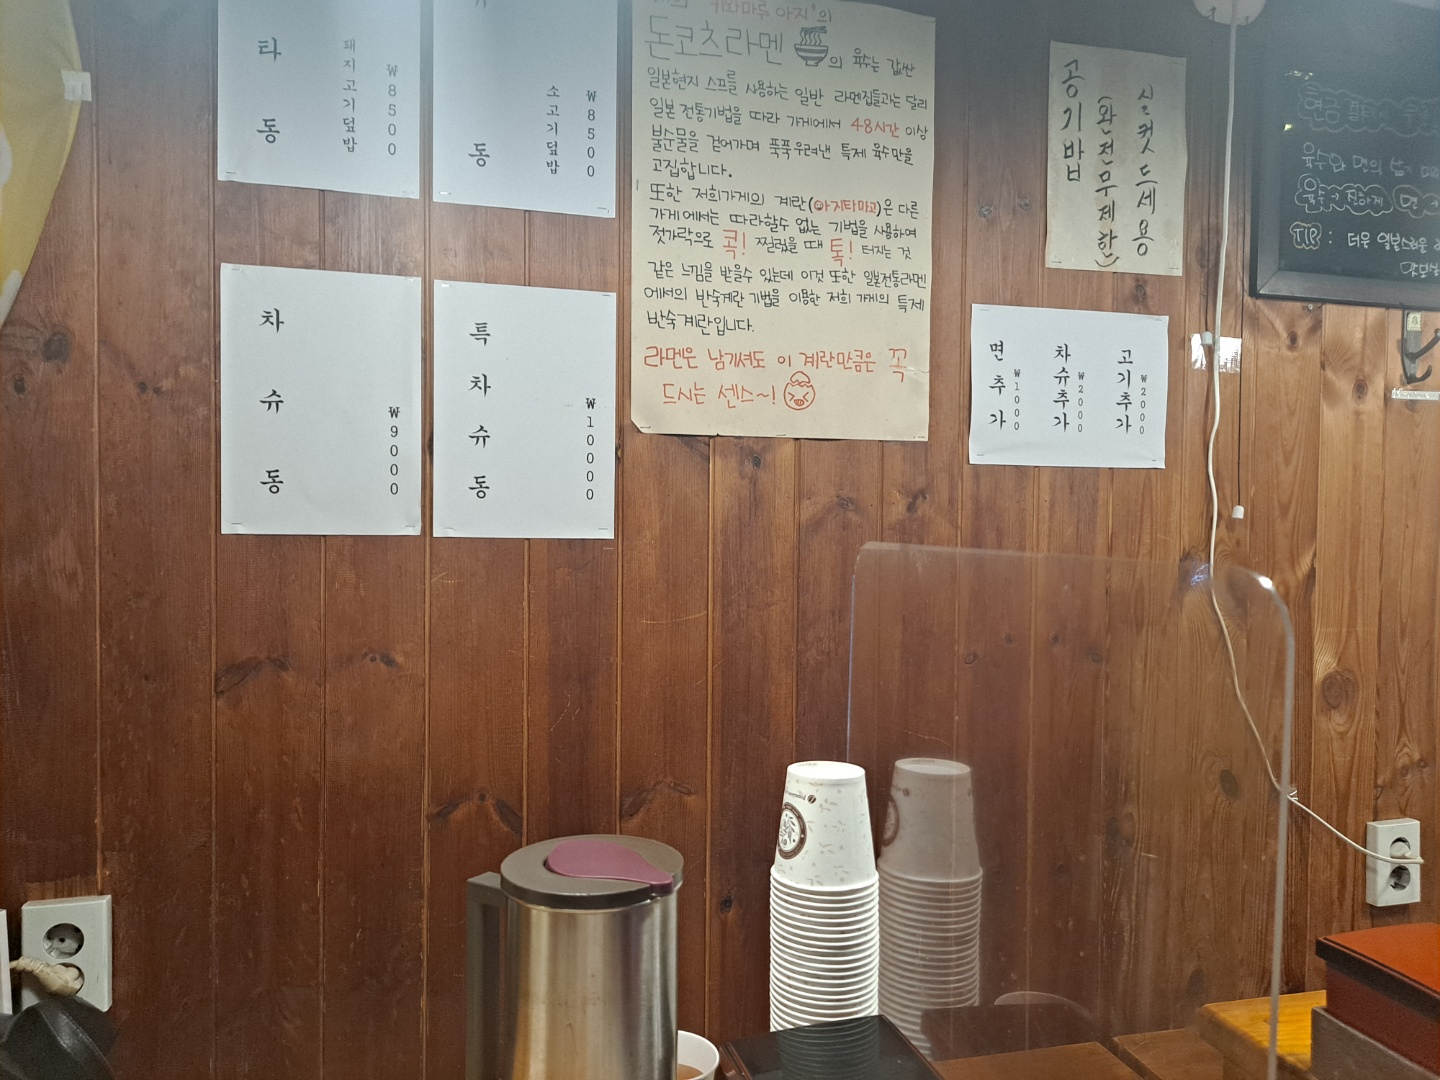 타 동
돼지고기덮밥
₩8500
동
소고기덮밥
₩8500
차 슈 동
₩9000
특 차 슈 동
₩10000
돈코츠라멘 의 육수는 값싼
일본현지 스프를 사용하는 일반 라멘집들과는 달리
일본 전통기법을 따라 가게에서 48시간 이상
불순물을 걷어가며 푹푹 우려낸 특제 육수만을
고집합니다.
또한 저희가게의 계란(아지타마고)은 다른
가게에서는 따라할수 없는 기법을 사용하여
젓가락으로 콕! 찔렀을 때 톡! 터지는 것
같은 느낌을 받을수 있는데 이것 또한 일본전통라멘
에서의 반숙계란 기법을 이용한 저희 가게의 특제
반숙계란입니다.
라멘은 남기셔도 이 계란만큼은 꼭
드시는 센스~!
공기밥
(완전무제한)
실컷드세용
면추가
₩1000
차슈추가
₩2000
고기추가
₩2000
연금
육수와 면의
육수 > 진하게 면
TIP : 더욱 일본스러운